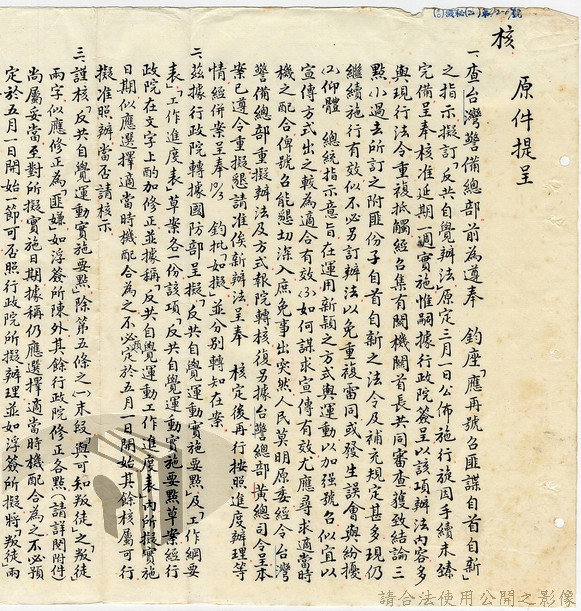 核
原件提呈
一、查台灣警備總部前為遵奉 鈞座「應再號召匪諜自首自新」
之指示擬訂「反共自覺辦法」原定三月一日公佈施行旋因手續未臻
完備呈奉核准延期一週實施惟嗣據行政院簽呈以該項辦法內容多
與現行法令重複抵觸經召集有關機關首長共同審查獲致結論三
點(1)過去所訂之附匪份子自首自新之法令及補充規定甚多現仍
繼續施行有效似不必另訂辦法以免重複雷同或發生誤會與紛擾
(2)仰體 總統指示意旨在運用新穎之方式與運動以加強號召似宜以
宣傳方式出之較為適合有效(3)如何謀求宣傳有效尤應尋求適當時
機之配合俾號召能懇切深入庶免事出突然人民莫明原委經令台灣
警備總部重擬辦法及方式報院轉核復另據台警總部黃總司令呈本
案已遵令重擬懇請准俟新辦法呈奉 核定後再行按照進度辦理等
情經併案呈奉10/3 鈞批「如擬」並分別轉知在案
二、茲據行政院轉據國防部呈擬「反共自覺運動實施要點」及「工作綱要
表」「工作進度表」草案各一份該項「反共自覺運動實施要點草案經行
政院在文字上酌加修正並據稱「反共自覺運動工作進度表」內所擬實施
日期似應選擇適當時機配合為之不必預定於五月一日開始其餘核屬可行
擬准照辦當否請核示
三、謹核「反共自覺運動實施要點」除第五條之(一)末級「與可知叛徒」之「叛徒」
兩字似應修正為「匪嫌」如浮簽所陳外其餘行政院修正各點(請詳閱附件
尚屬妥當至對所擬實施日期據稱仍應選擇適當時機配合為之不必預
定於五月一日開始一節可否照行政院所擬辦理並如浮簽所擬將「叛徒」兩
請合法使用公開之影像